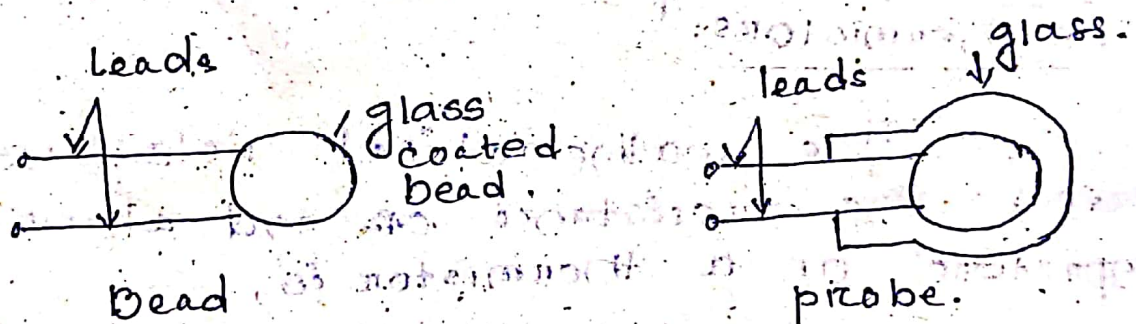 Leads
glass
coated
bead.
Bead
glass.
leads
probe.